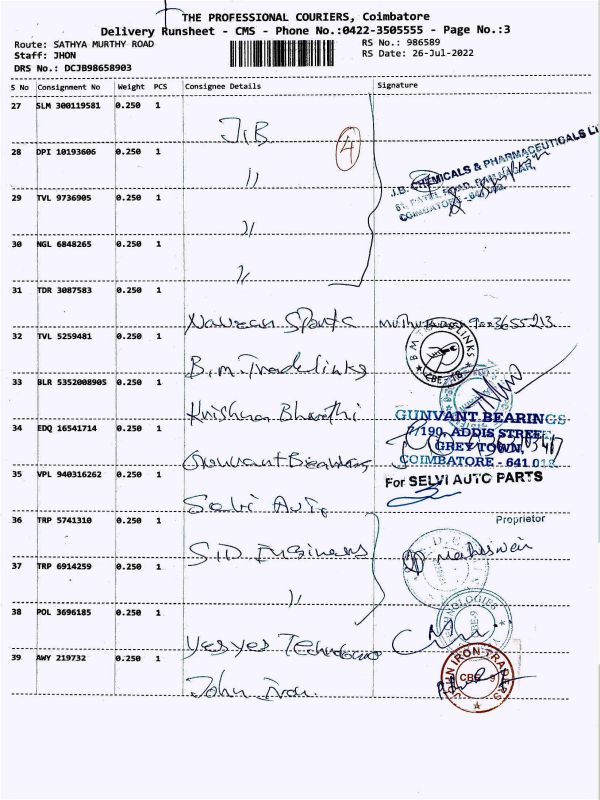 THE PROFESSIONAL COURIERS, Coimbatore
Delivery Runsheet - CMS - Phone No.:0422-3505555 - Page No.:3
Route: SATHYA MURTHY ROAD
RS No.: 986589
Staff: JHON
RS Date: 26-Jul-2022
DRS No.: DCJB98658903
S No Consignment No Weight PCS Consignee Details Signature
27 SLM 300119581 0.250 1
J.B
4
28 DPI 10193606 0.250 1
"
J.B. CHEMICALS & PHARMACEUTICALS LT
COIMBATORE - 641
29 TVL 9736905 0.250 1
"
30 NGL 6848265 0.250 1
"
31 TDR 3087583 0.250 1
Naveen Sports
32 TVL 5259481 0.250 1
B.M. Tradelinks
B M TRADELINKS
CBE-18
33 BLR 5352008905 0.250 1
Krishna Bharathi
34 EDQ 16541714 0.250 1
Gunvant Bearings
GUNVANT BEARINGS
7/190, ADDIS STREET,
GREY TOWN,
COIMBATORE - 641 018
35 VPL 940316262 0.250 1
Selvi Auto
For SELVI AUTO PARTS
Proprietor
36 TRP 5741310 0.250 1
S.D Engineers
37 TRP 6914259 0.250 1
"
38 POL 3696185 0.250 1
Yesyes Technologies
39 AWY 219732 0.250 1
John Iron.
JOHN IRON TRADERS
CBE 9